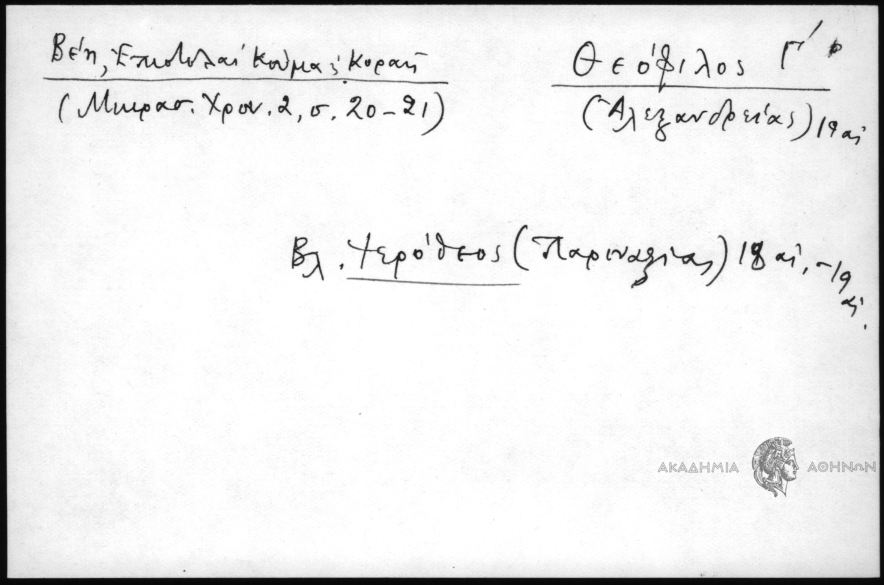 Βέη, Ἐπιστολαὶ Κούμα & Κοραῆ
(Μικρασ. Χρον. 2, σ. 20-21)
Θεόφιλος Γ΄
(Ἀλεξανδρείας) 19 αἰ
Βλ. Ἱερόθεος (Παροναξίας) 18 αἰ. - 19 αἰ.
ΑΚΑΔΗΜΙΑ ΑΘΗΝΩΝ